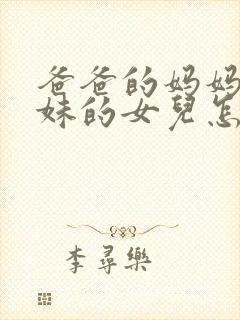 爸爸的妈妈
妹的女兒怎
李尋樂